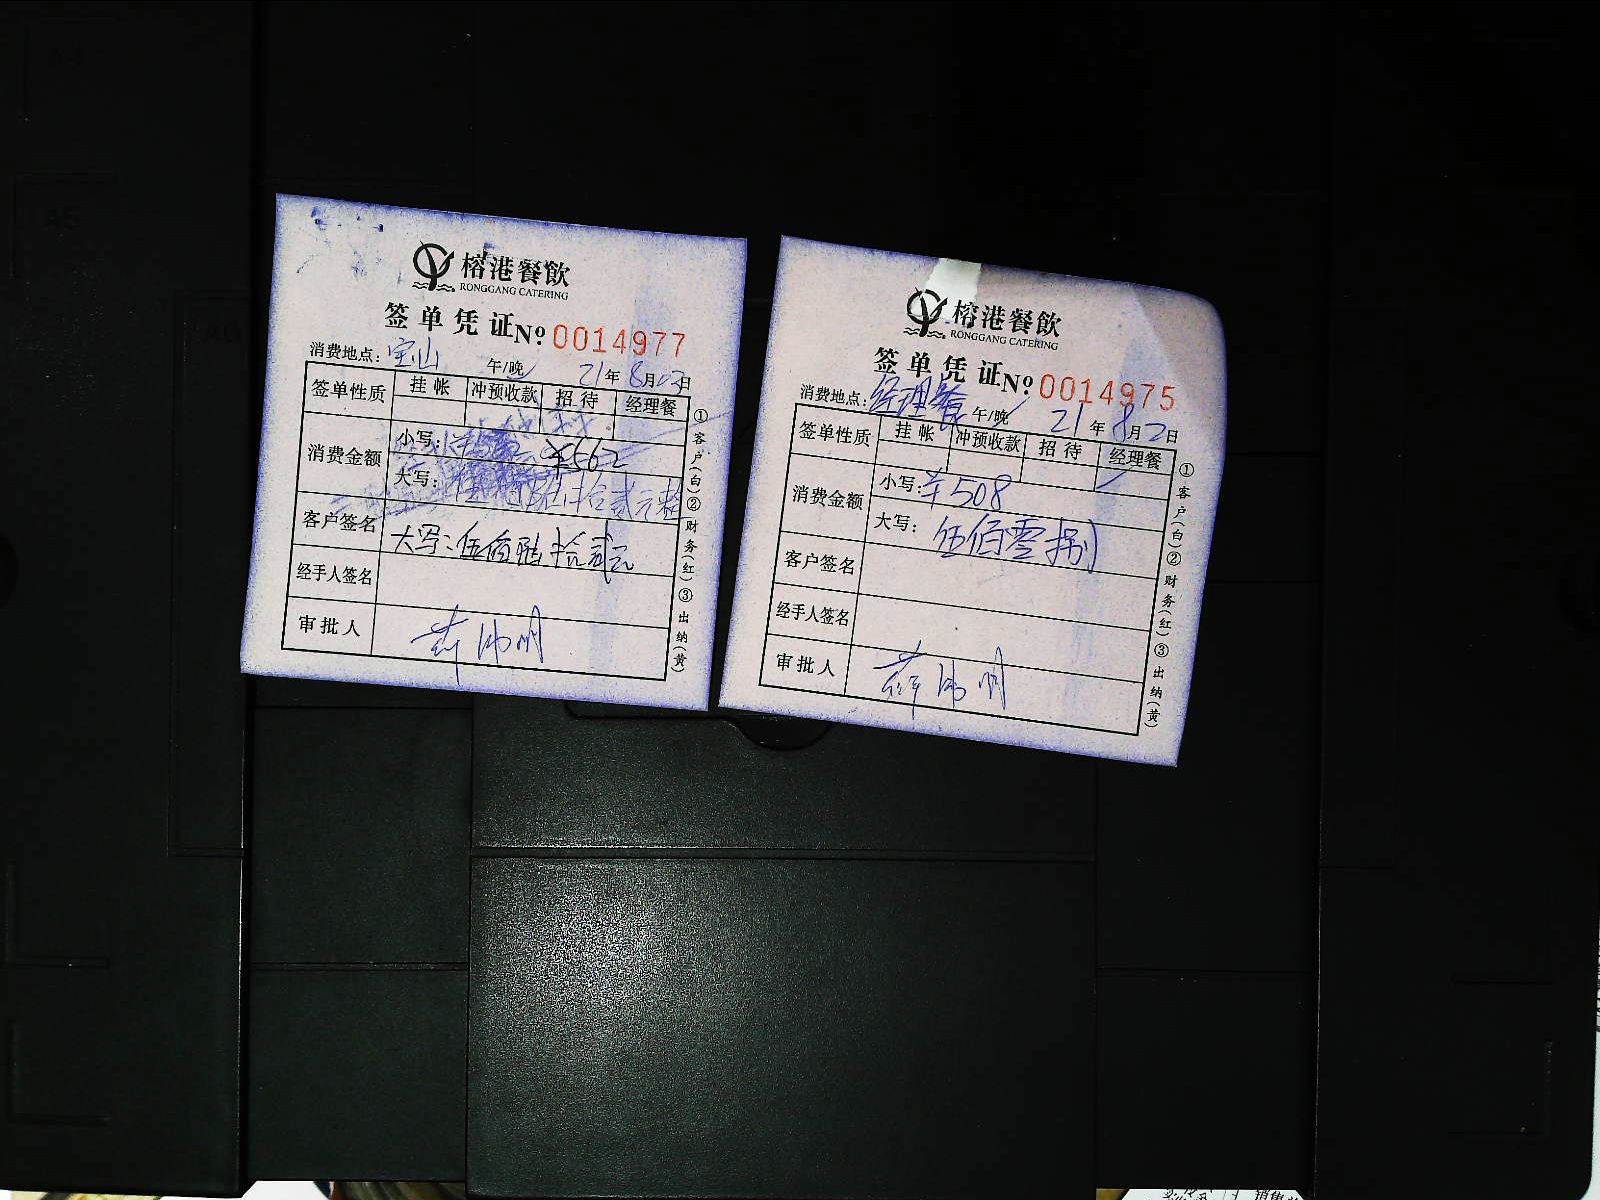 榕港餐飲
RONGGANG CATERING
签单凭证№ 0014977
消费地点：宝山 午/晚 21年8月02日
签单性质 挂帐 冲预收款 招待 经理餐
消费金额 小写： ¥562
大写： 拾贰元整
客户签名 大写：伍佰陆拾贰元
经手人签名
审批人
①客户(白)②财务(红)③出纳(黄)
榕港餐飲
RONGGANG CATERING
签单凭证№ 0014975
消费地点：经理餐 午/晚 21年8月2日
签单性质 挂帐 冲预收款 招待 经理餐
消费金额 小写：¥508
大写：伍佰零捌
客户签名
经手人签名
审批人 薛
①客户(白)②财务(红)③出纳(黄)